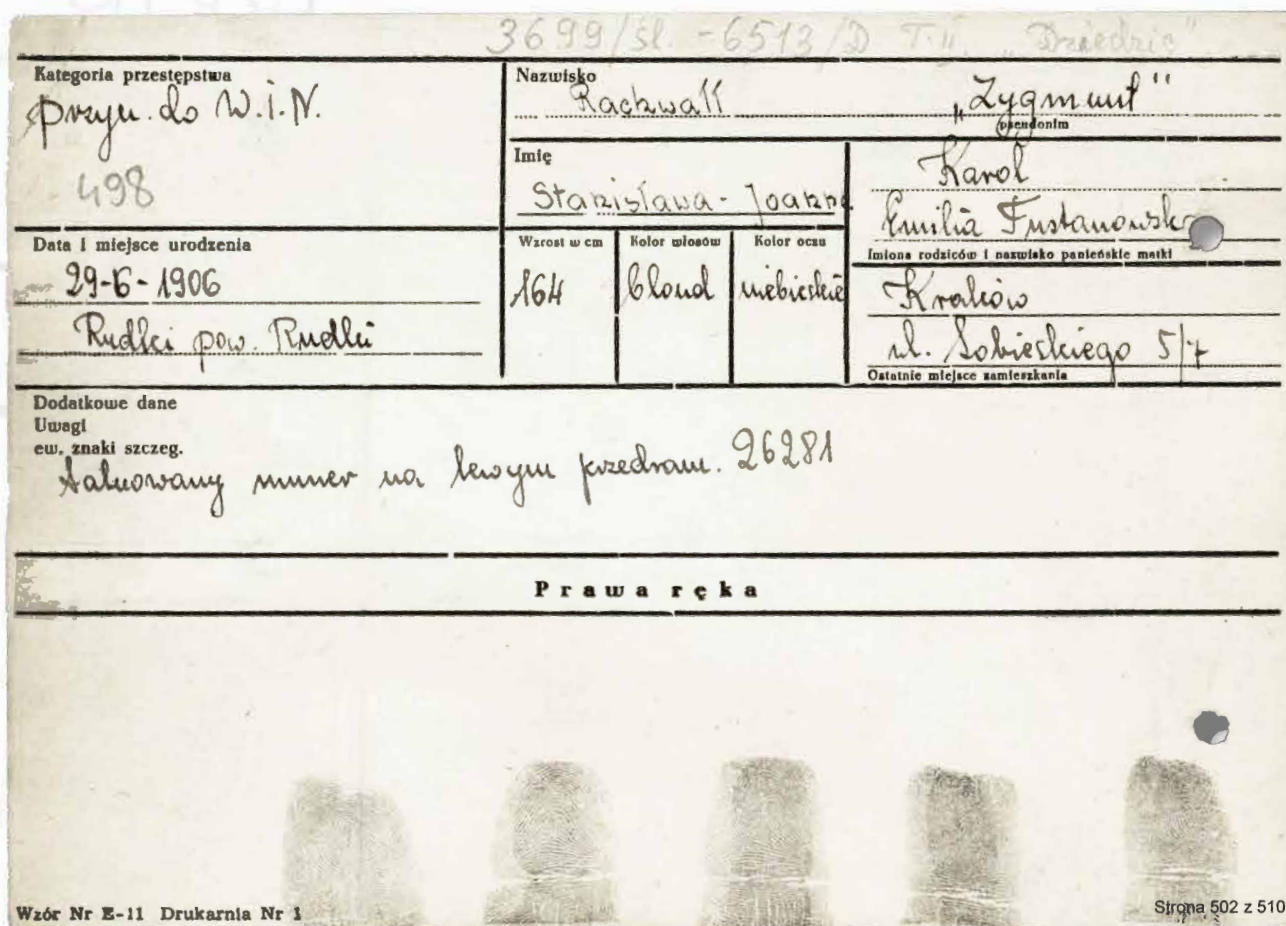 3699/śl. - 6513/D T.II. „Dziedzic"
Kategoria przestępstwa
przyn. do W.i.N.
498
Nazwisko
Rachwałł „Zygmunt"
pseudonim
Imię
Stanisława - Joanna
Karol
Emilia Fustanowska
Imiona rodziców i nazwisko panieńskie matki
Data i miejsce urodzenia
29-6-1906
Rudki pow. Rudki
Wzrost w cm
164
Kolor włosów
blond
Kolor oczu
niebieskie
Kraków
ul. Sobieskiego 5/7
Ostatnie miejsce zamieszkania
Dodatkowe dane
Uwagi
ew. znaki szczeg.
tatuowany numer na lewym przedram. 26281
Prawa ręka
Wzór Nr E-11 Drukarnia Nr 1
Strona 502 z 510